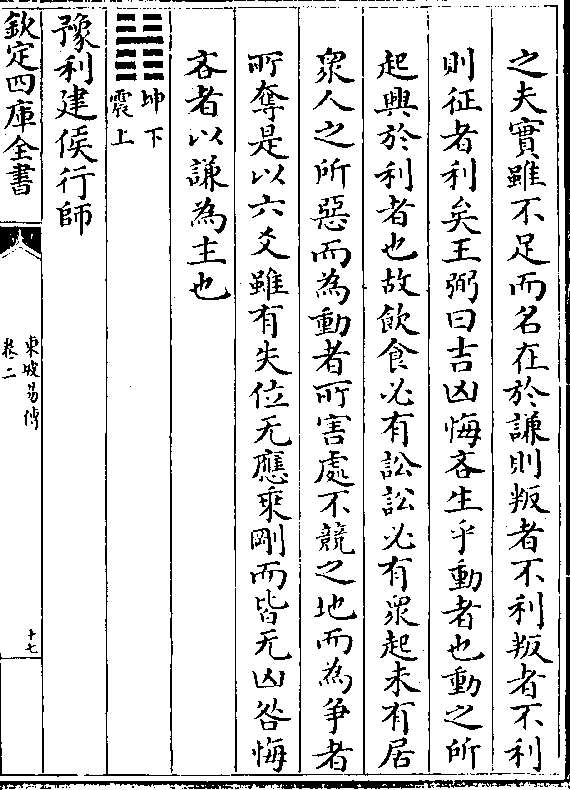 之夫實雖不足而名在於謙則叛者不利叛者不利
則征者利矣王弼曰吉凶悔吝生乎動者也動之所
起興於利者也故飲食必有訟訟必有衆起未有居
衆人之所惡而為動者所害處不競之地而為爭者
所奪是以六爻雖有失位无應乘剛而皆无凶咎悔
吝者以謙為主也
坤下
震上
豫利建侯行師
欽定四庫全書
東坡易傳
卷二
十七